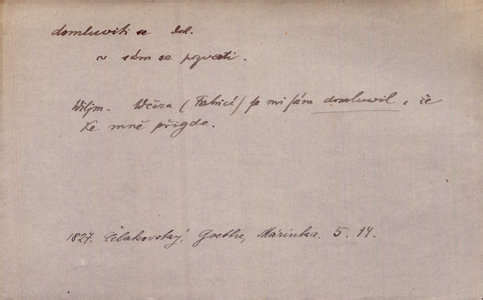 domluviti se dok.
v sám se
Wilém. Wčera (Fabricí) se mi sám domluwil, že
ke mně přigde.
1827. Čelakovský. Goethe, Márinka. 5. 14.